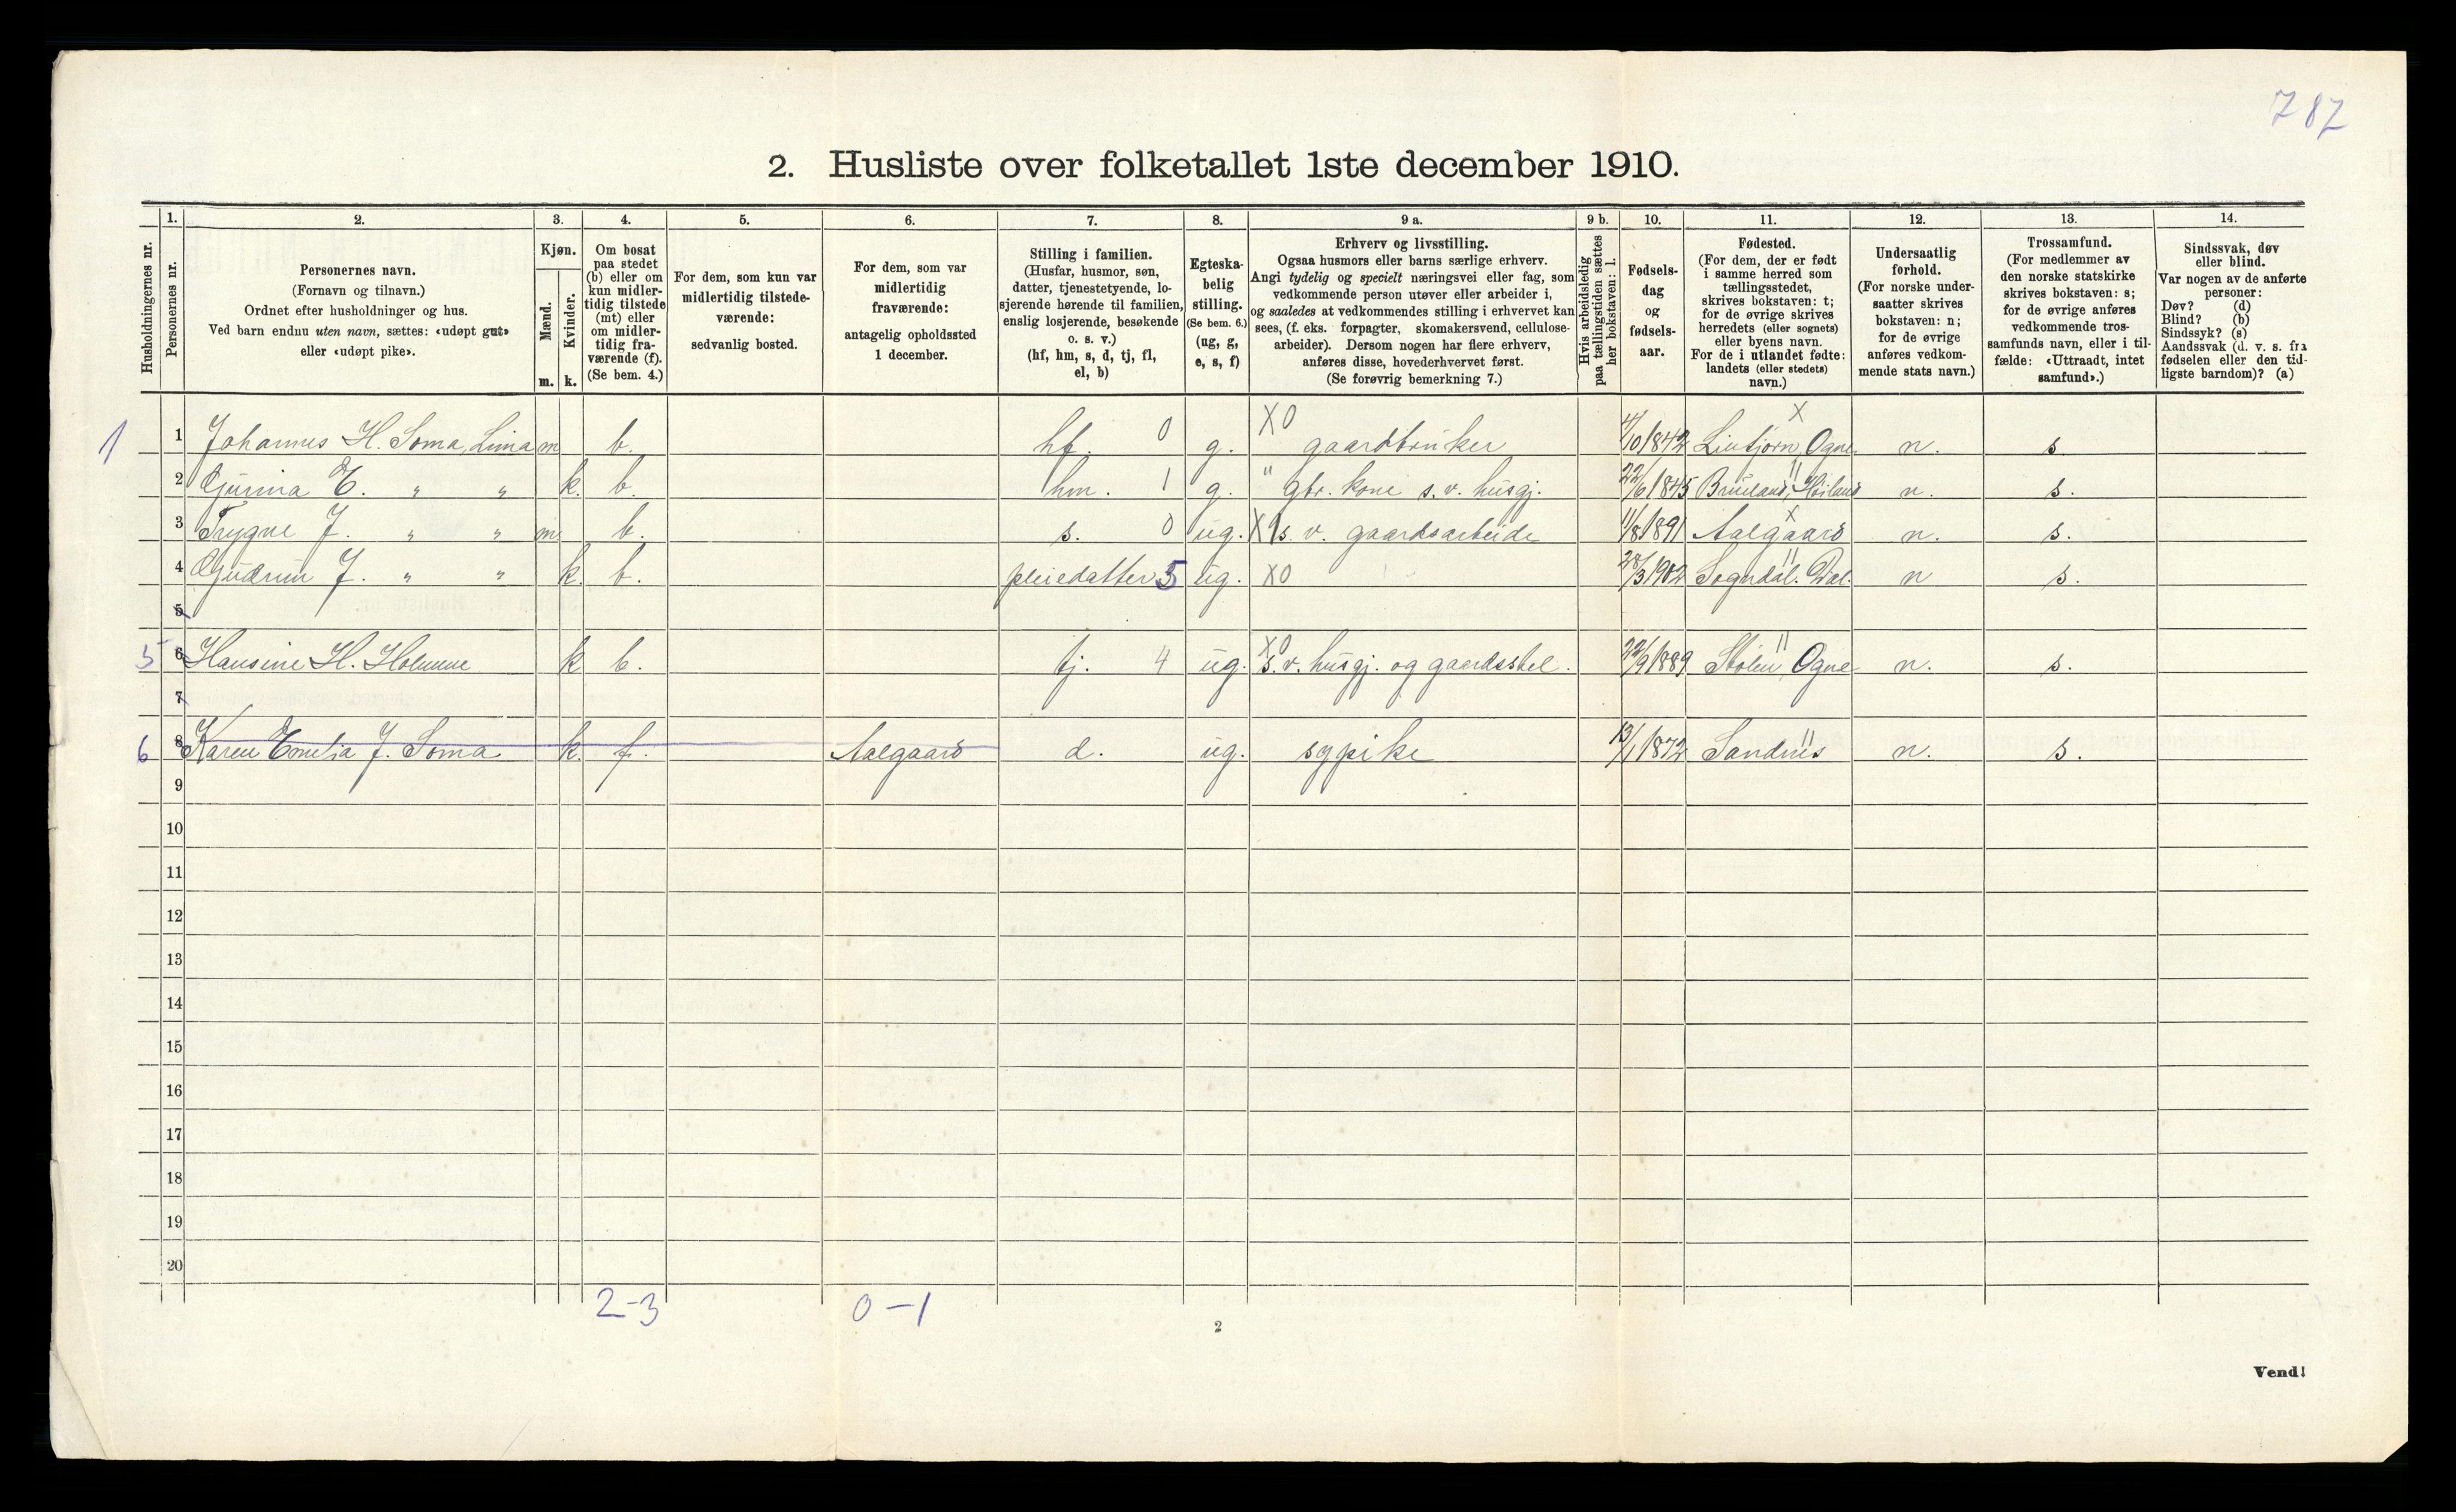 787
2. Husliste over folketallet 1ste december 1910.
1. 2. 3. 4. 5. 6. 7. 8. 9 a. 9 b. 10. 11. 12. 13. 14.
Husholdningernes nr.
Personernes nr.
Personernes navn.
(Fornavn og tilnavn.)
Ordnet efter husholdninger og hus.
Ved barn endnu uten navn, sættes: «udøpt gut»
eller «udøpt pike».
Kjøn.
Mænd.
Kvinder.
m. k.
Om bosat
paa stedet
(b) eller om
kun midler-
tidig tilstede
(mt) eller
om midler-
tidig fra-
værende (f).
(Se bem. 4.)
For dem, som kun var
midlertidig tilstede-
værende:
sedvanlig bosted.
For dem, som var
midlertidig
fraværende:
antagelig opholdssted
1 december.
Stilling i familien.
(Husfar, husmor, søn,
datter, tjenestetyende, lo-
sjerende hørende til familien,
enslig losjerende, besøkende
o. s. v.)
(hf, hm, s, d, tj, fl,
el, b)
Egteska-
belig
stilling.
(Se bem. 6.)
(ug, g,
e, s, f)
Erhverv og livsstilling.
Ogsaa husmors eller barns særlige erhverv.
Angi tydelig og specielt næringsvei eller fag, som
vedkommende person utøver eller arbeider i,
og saaledes at vedkommendes stilling i erhvervet kan
sees, (f. eks. forpagter, skomakersvend, cellulose-
arbeider). Dersom nogen har flere erhverv,
anføres disse, hovederhvervet først.
(Se forøvrig bemerkning 7.)
Hvis arbeidsledig
paa tællingstiden sættes
her bokstaven: l.
Fødsels-
dag
og
fødsels-
aar.
Fødested.
(For dem, der er født
i samme herred som
tællingsstedet,
skrives bokstaven: t;
for de øvrige skrives
herredets (eller sognets)
eller byens navn.
For de i utlandet fødte:
landets (eller stedets)
navn.)
Undersaatlig
forhold.
(For norske under-
saatter skrives
bokstaven: n;
for de øvrige
anføres vedkom-
mende stats navn.)
Trossamfund.
(For medlemmer av
den norske statskirke
skrives bokstaven: s;
for de øvrige anføres
vedkommende tros-
samfunds navn, eller i til-
fælde: «Uttraadt, intet
samfund».)
Sindssvak, døv
eller blind.
Var nogen av de anførte
personer:
Døv? (d)
Blind? (b)
Sindssyk? (s)
Aandssvak (d. v. s. fra
fødselen eller den tid-
ligste barndom)? (a)
1 1 Johannes H. Soma, Lima m b. hf. 0 g. X0 gaardbruker /10 1842 Ogne X n. s.
2 Gurina E. " " k. b. hm. 1 g. " gbr. kone s. v. husgj. 22/6 1845 Høiland " n. s.
3 Trygve J. " " m. b. s. 0 ug. X1 s. v. gaardsarbeide 11/8 1891 Aalgaard X n. s.
4 Gudrun J. " " k. b. pleiedatter 5 ug. X0 28/3 1902 Sogndal. Dal. " n s.
5
5 6 Hansine H. Holmene k b. tj. 4 ug. X0 s. v. husgj. og gaardsstel. 22/9 1889 Stølen, Ogne " n. s.
7
6 8 Karen Emelia J. Soma k. f. Aalgaard d. ug. sypike 13/1 1872 Sandnes " n. s.
9
10
11
12
13
14
15
16
17
18
19
20
2-3 0-1
2
Vend!